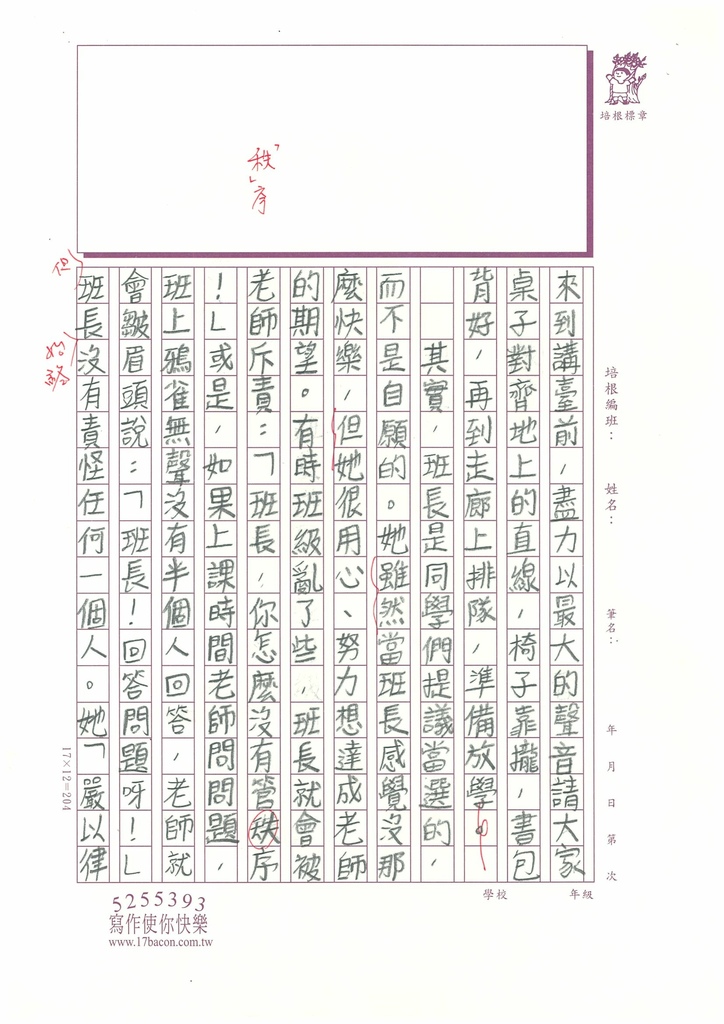 培根標章
秩
序
培根編班：　姓名：　筆名：　年　月　日　第　次
來到講臺前，盡力以最大的聲音請大家
桌子對齊地上的直線，椅子靠攏，書包
背好，再到走廊上排隊，準備放學。
其實，班長是同學們提議當選的，
而不是自願的。她雖然當班長感覺沒那
麼快樂，但她很用心、努力想達成老師
的期望。有時班級亂了些，班長就會被
老師斥責：「班長，你怎麼沒有管秩序
！」或是，如果上課時間老師問問題，
班上鴉雀無聲沒有半個人回答，老師就
會皺眉頭說：「班長！回答問題呀！」
但
班長沒有責怪任何一個人。她「嚴以律
始終
17×12=204
學校　年級
5255393
寫作使你快樂
www.17bacon.com.tw